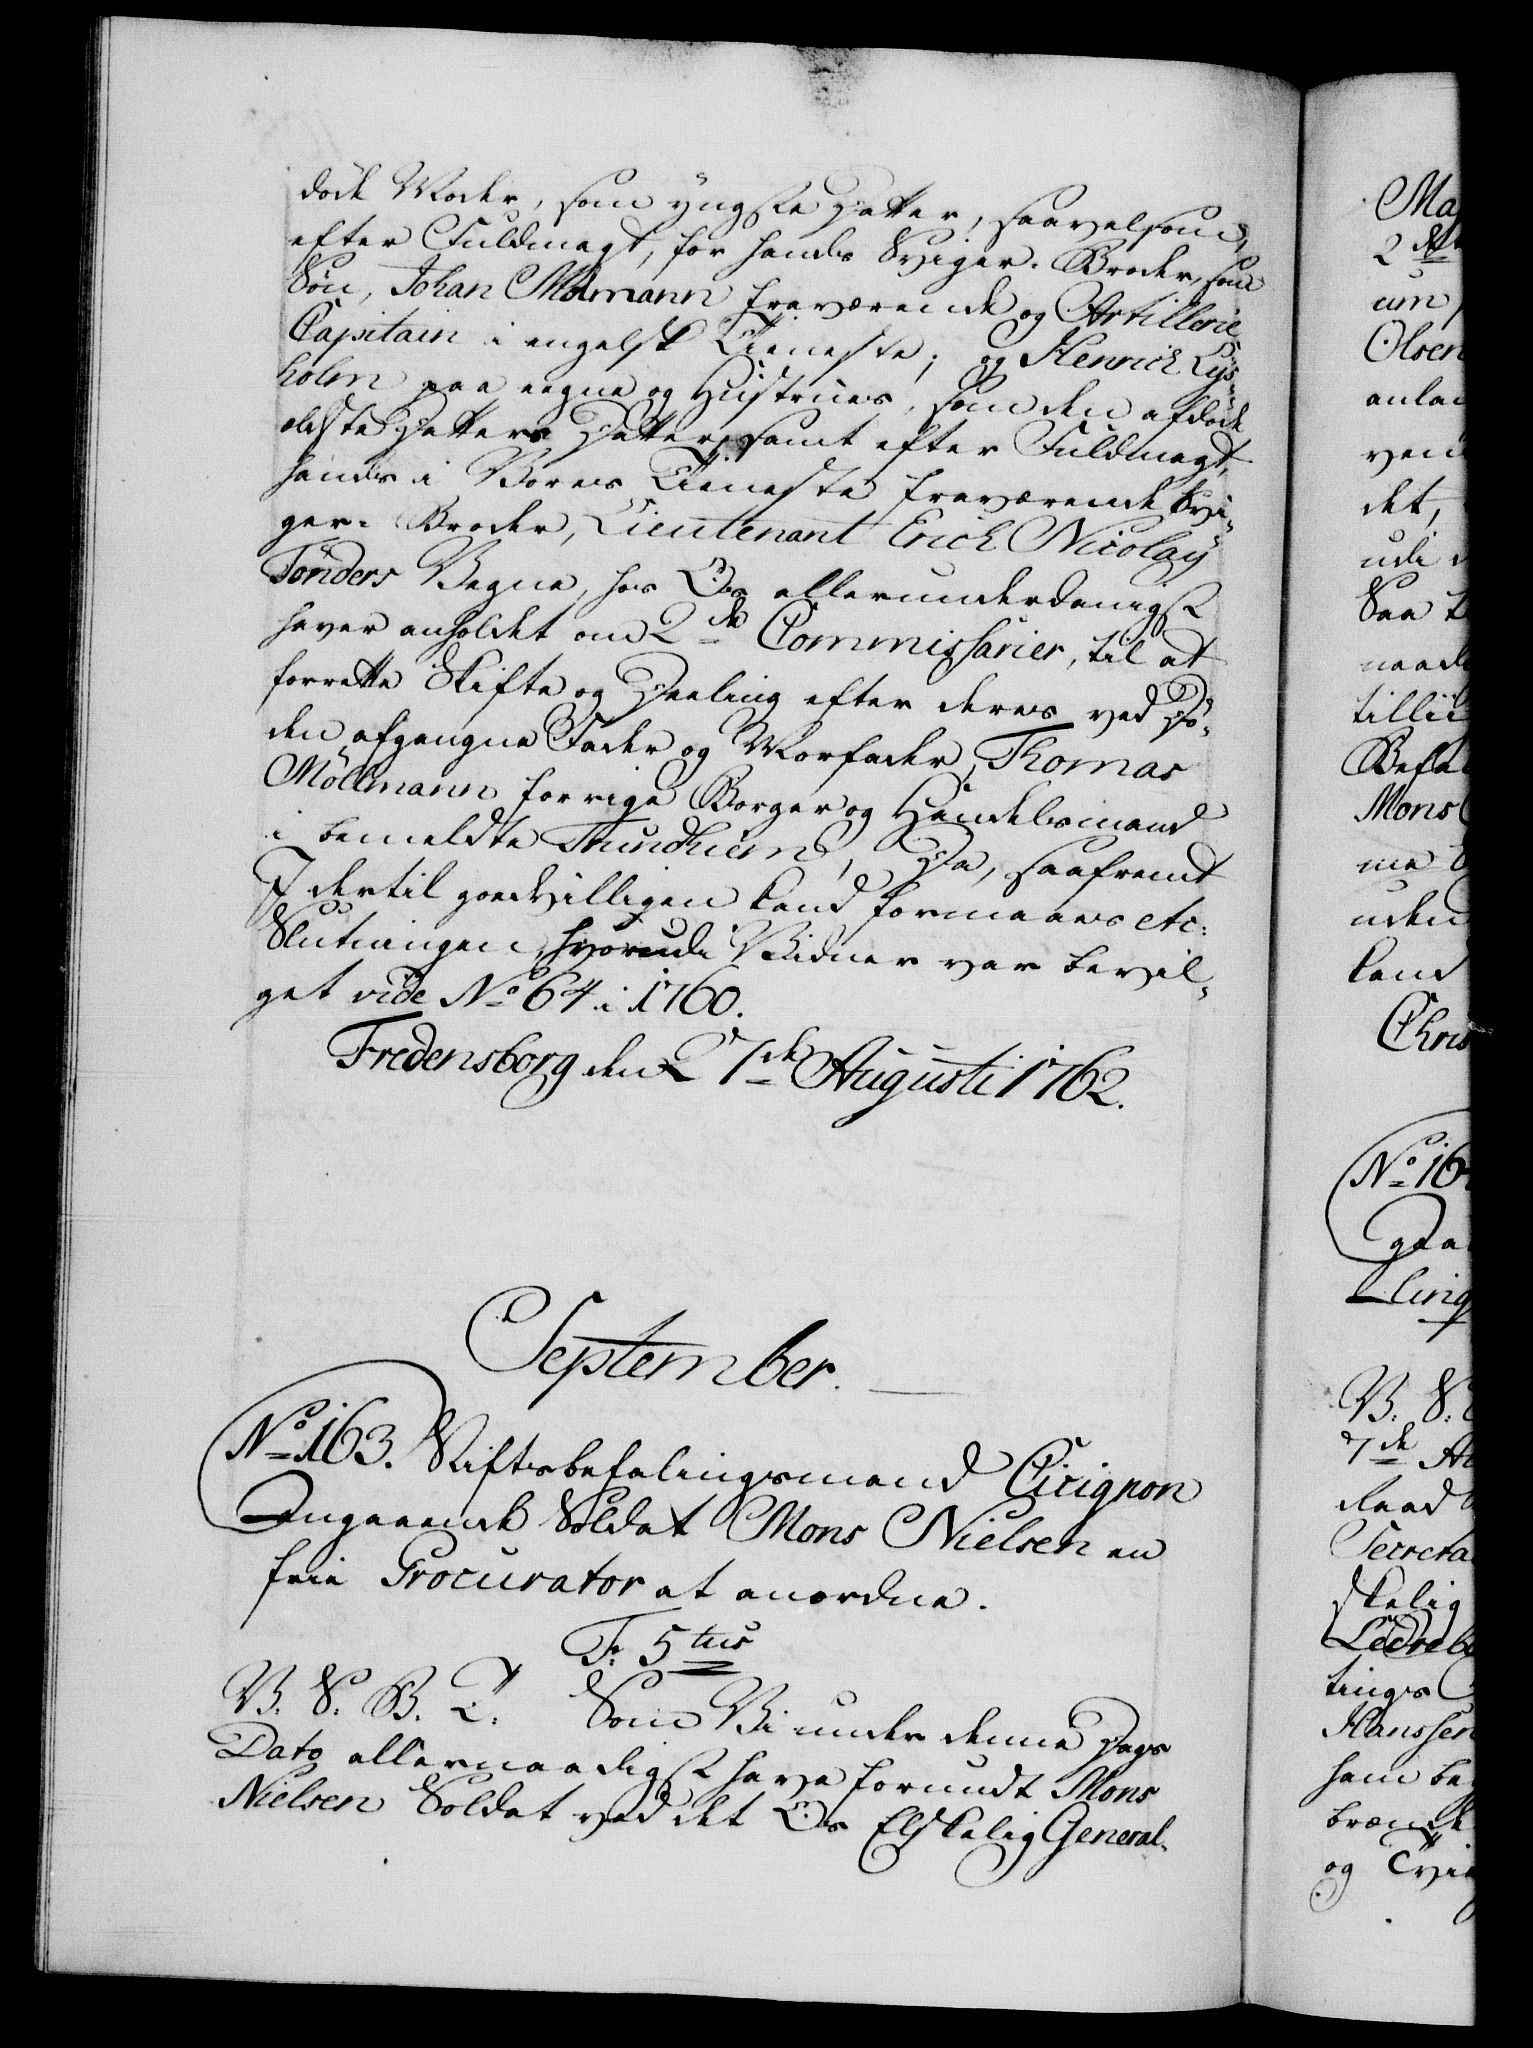 døde Moder, som yngste Datter, saavelsom,
efter Fuldmagt, for hands Sviger-Broder, som
Søn, Johan Mølmann fraværende og Artillerie
Capitain i engelsk Tieneste; og Henrich Lys-
holm paa egne og Hustrues, som den afdøde
ældste Datters Datter, samt efter Fuldmagt,
hands i Vores Tieneste fraværende Svi-
ger-Broder, Lieutenant Erich Nicolay
Tønders Vegne, hos Os allerunderdanigst
haver anholdet om 2de Commissarier, til at
forrette Skifte og Deeling efter deres ved Dö-
den afgangne Fader og Morfader, Thomas
Möllmann forrige Borger og Handelsmand
i bemeldte Trundhiem, Da, saafremt
I dertil goedvilligen kand formaaes etc:
Slutningen, hvorudi Vidner var bevil-
get vide No 64 i 1760.
Fredensborg den 27de Augusti 1762.
September.
No 163. Stiftsbefalingsmand Cicignon
Angaaende Soldat Mons Nielsen en
frie Procurator at anordne.
F: 5tus
V. S. B. T. Som Vi under denne Dags
Dato allernaadigst have forundt Mons
Nielsen Soldat ved det Os Elskelig General-
Ma
2det
um
Olsen
anla
ven
det,
udi
Saa
naad
tillii
Befa
Mons
me
uden
kand
Chris
No 16
gaa
Ling
V. S.
7de A
Raad
Secreta
skelig
tings
Hanssen
ham be
brænde
og Tvi